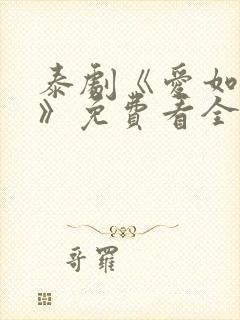 泰劇《愛如
》免費看全
哥羅